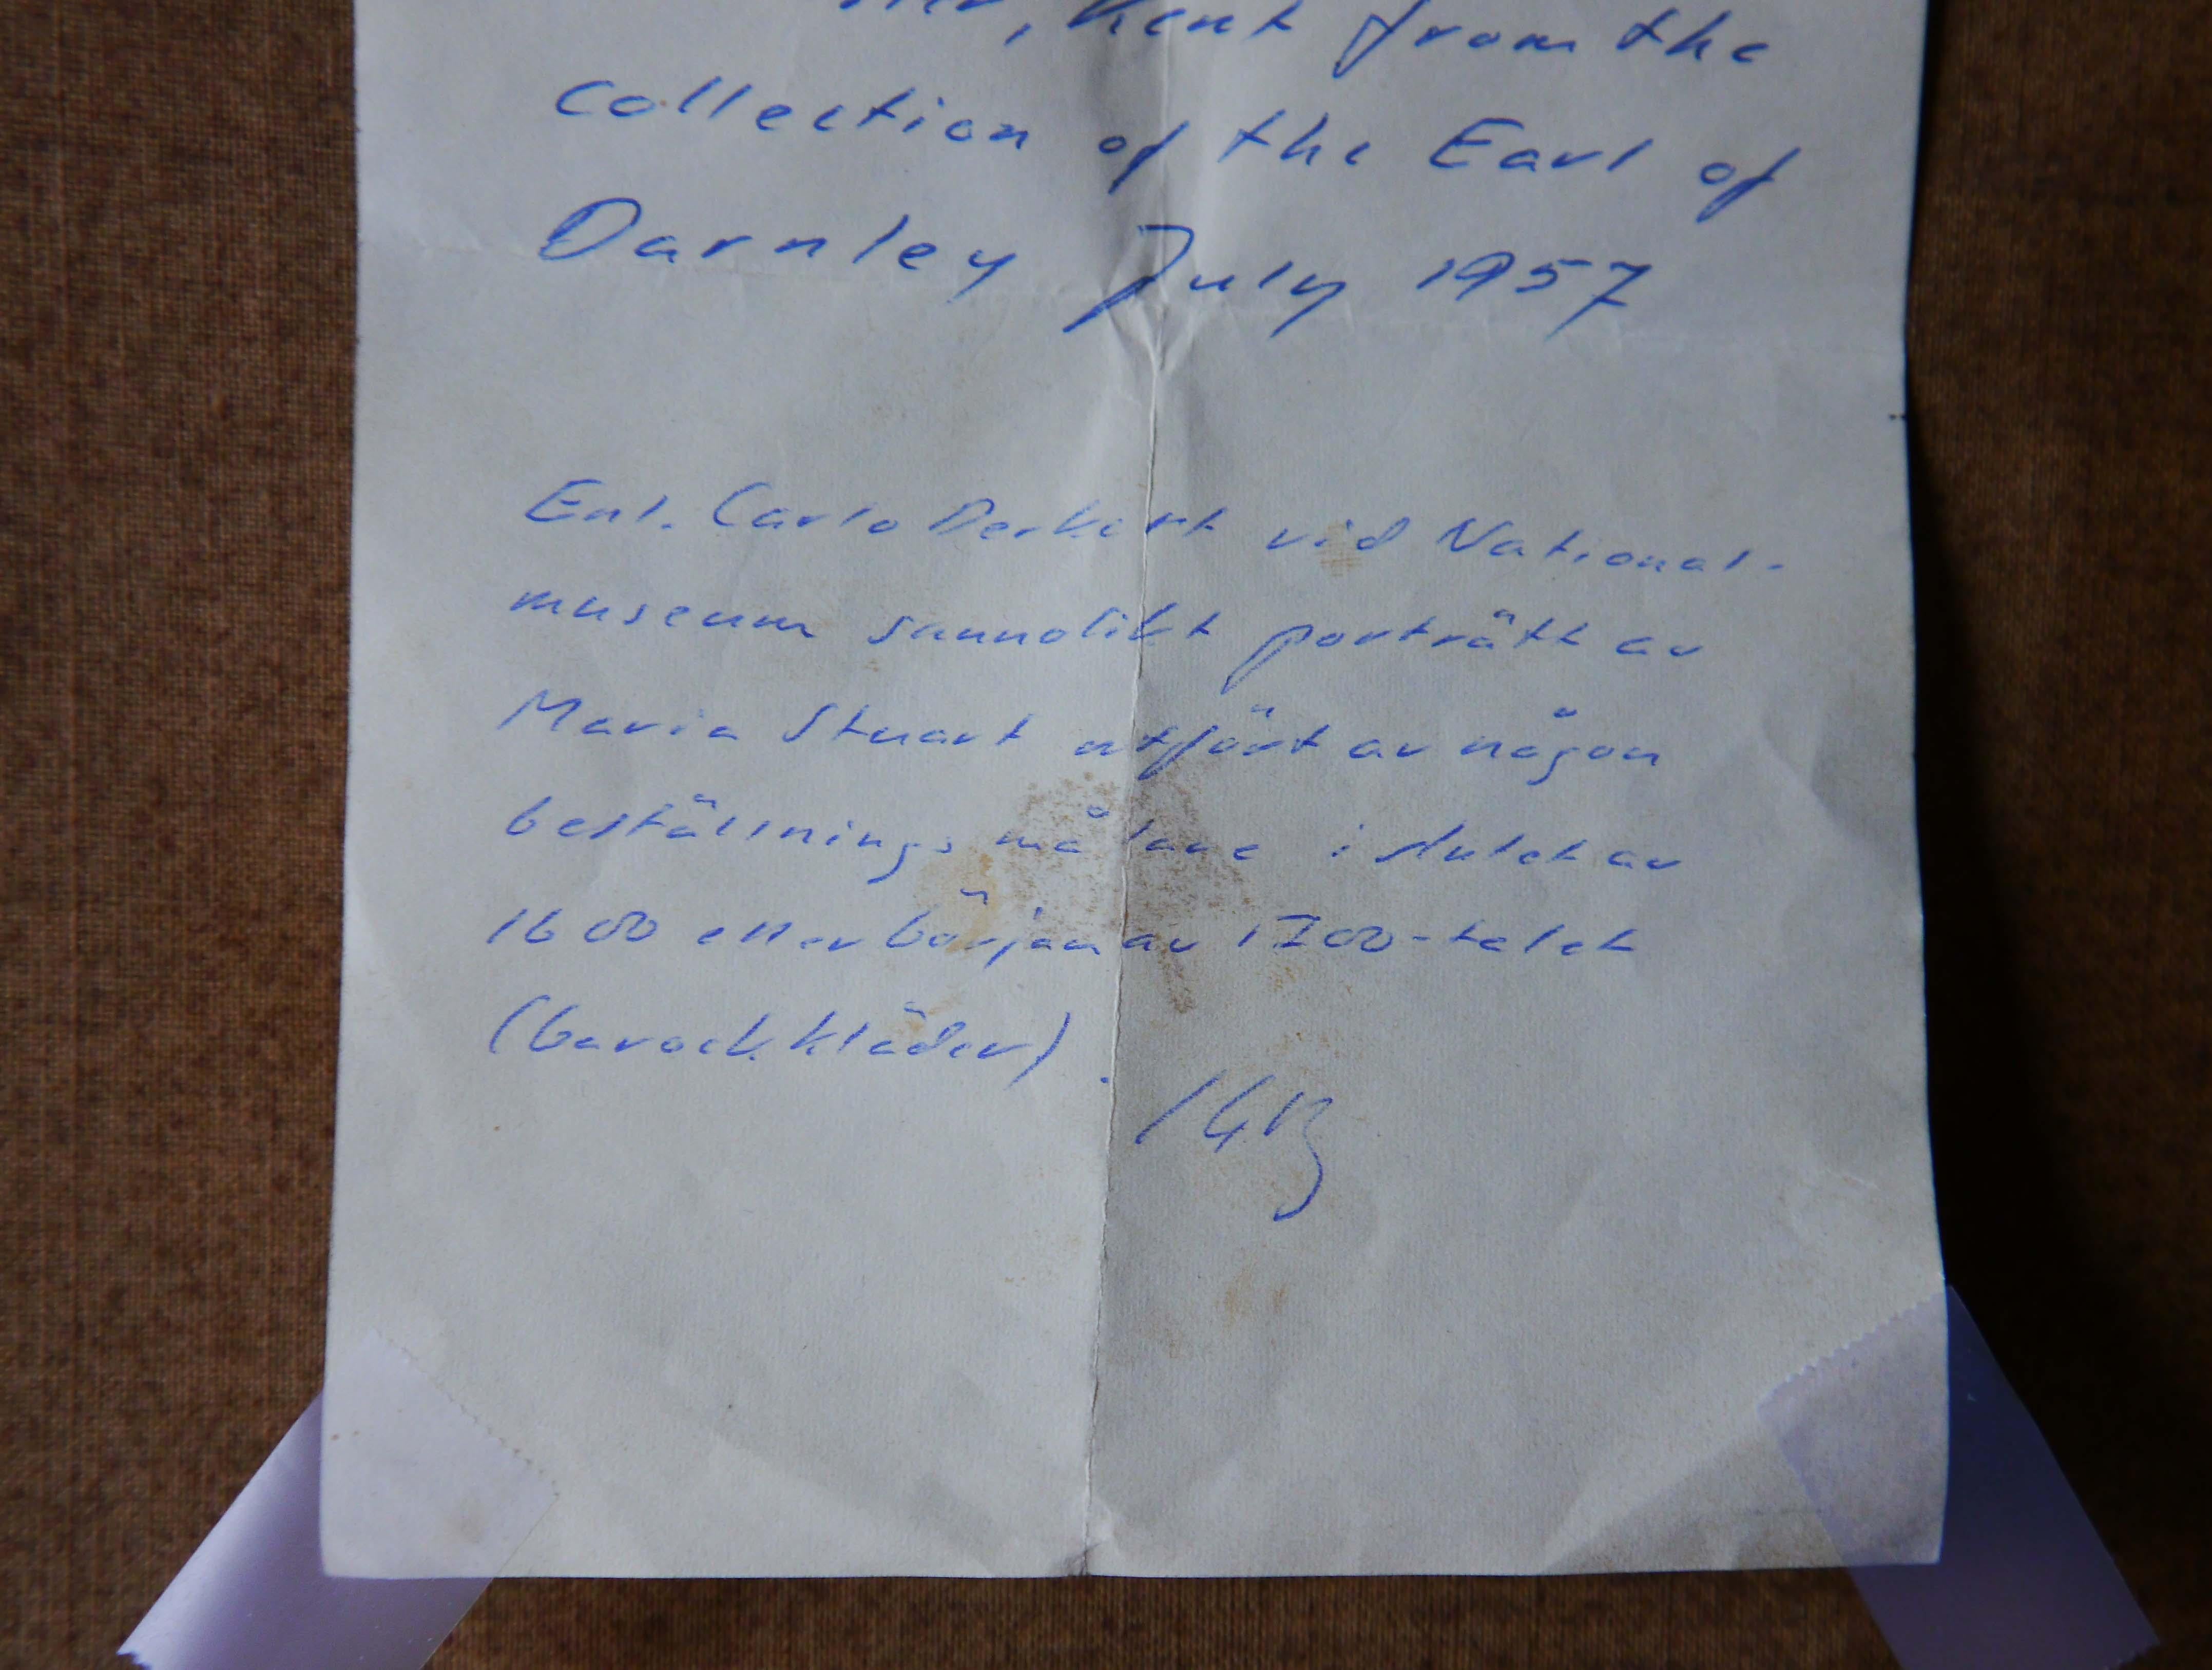 , Kent from the
collection of the Earl of
Darnley July 1957
Enl. Carlo Derkert vid National-
museum sannolikt porträtt av
Maria Stuart utfört av någon
beställningsmålare i slutet av
1600 eller början av 1700-talet
(barockkläder).